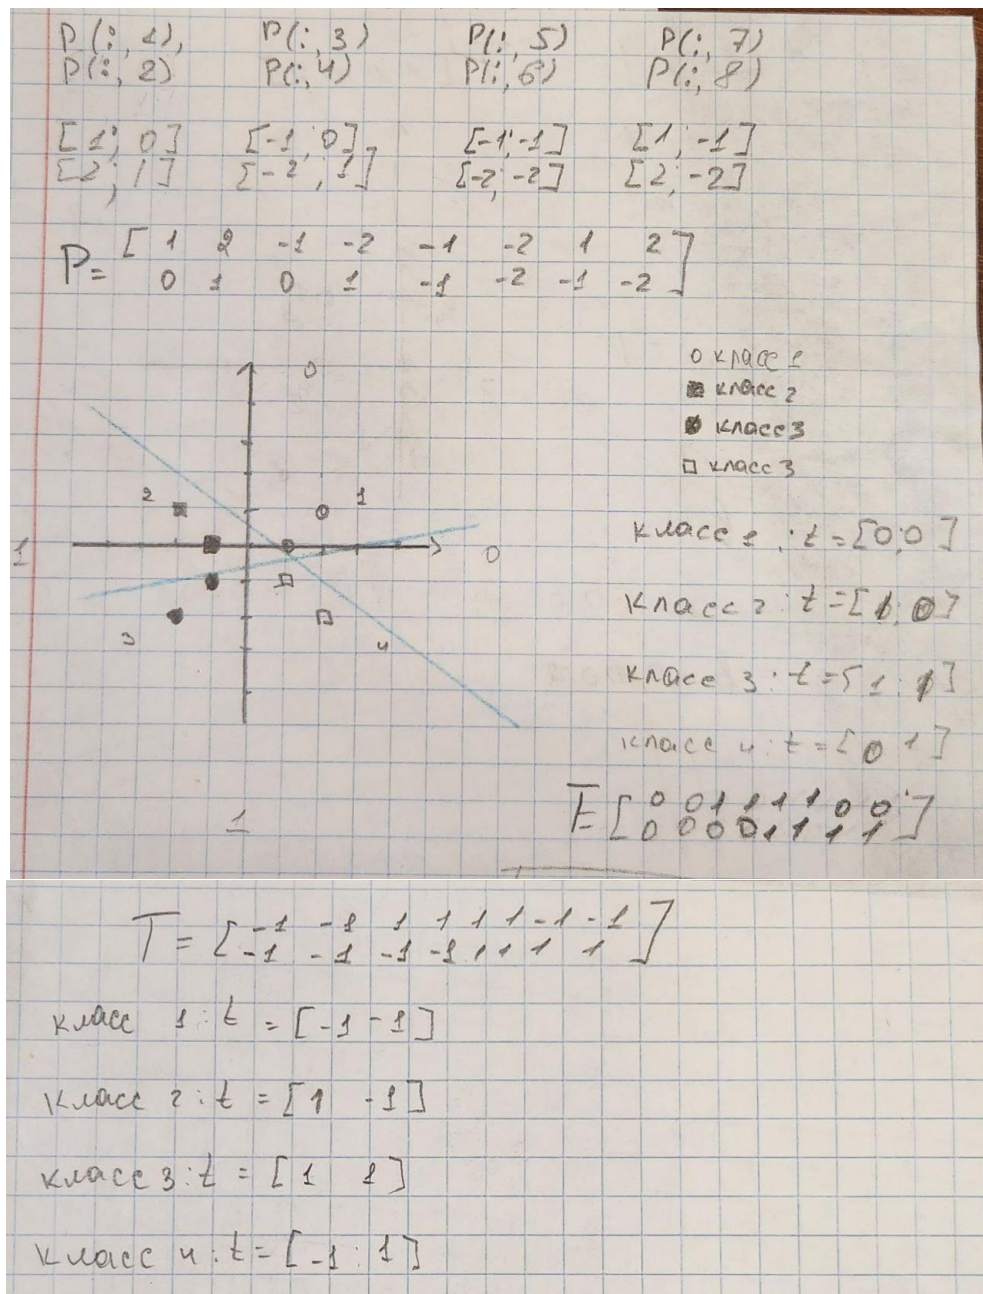 P(:, 1), P(:, 3) P(:, 5) P(:, 7)
P(:, 2) P(:, 4) P(:, 6) P(:, 8)
[1; 0] [-1; 0] [-1; -1] [1; -1]
[2; 1] [-2; 1] [-2; -2] [2; -2]
P= [1 2 -1 -2 -1 -2 1 2
0 1 0 1 -1 -2 -1 -2]
0
о класс 1
класс 2
класс 3
класс 3
2
1
1
0
3
4
1
класс 1 : t=[0;0]
класс 2 : t=[1 0]
класс 3 : t=[1; 1]
класс 4 : t=[0 1]
T= [0 0 1 1 1 1 0 0
0 0 0 0 1 1 1 1]
T= [-1 -1 1 1 1 1 -1 -1
-1 -1 -1 -1 1 1 1 1]
класс 1 : t = [-1 -1]
класс 2 : t = [1 -1]
класс 3 : t = [1 1]
класс 4 : t = [-1 : 1]